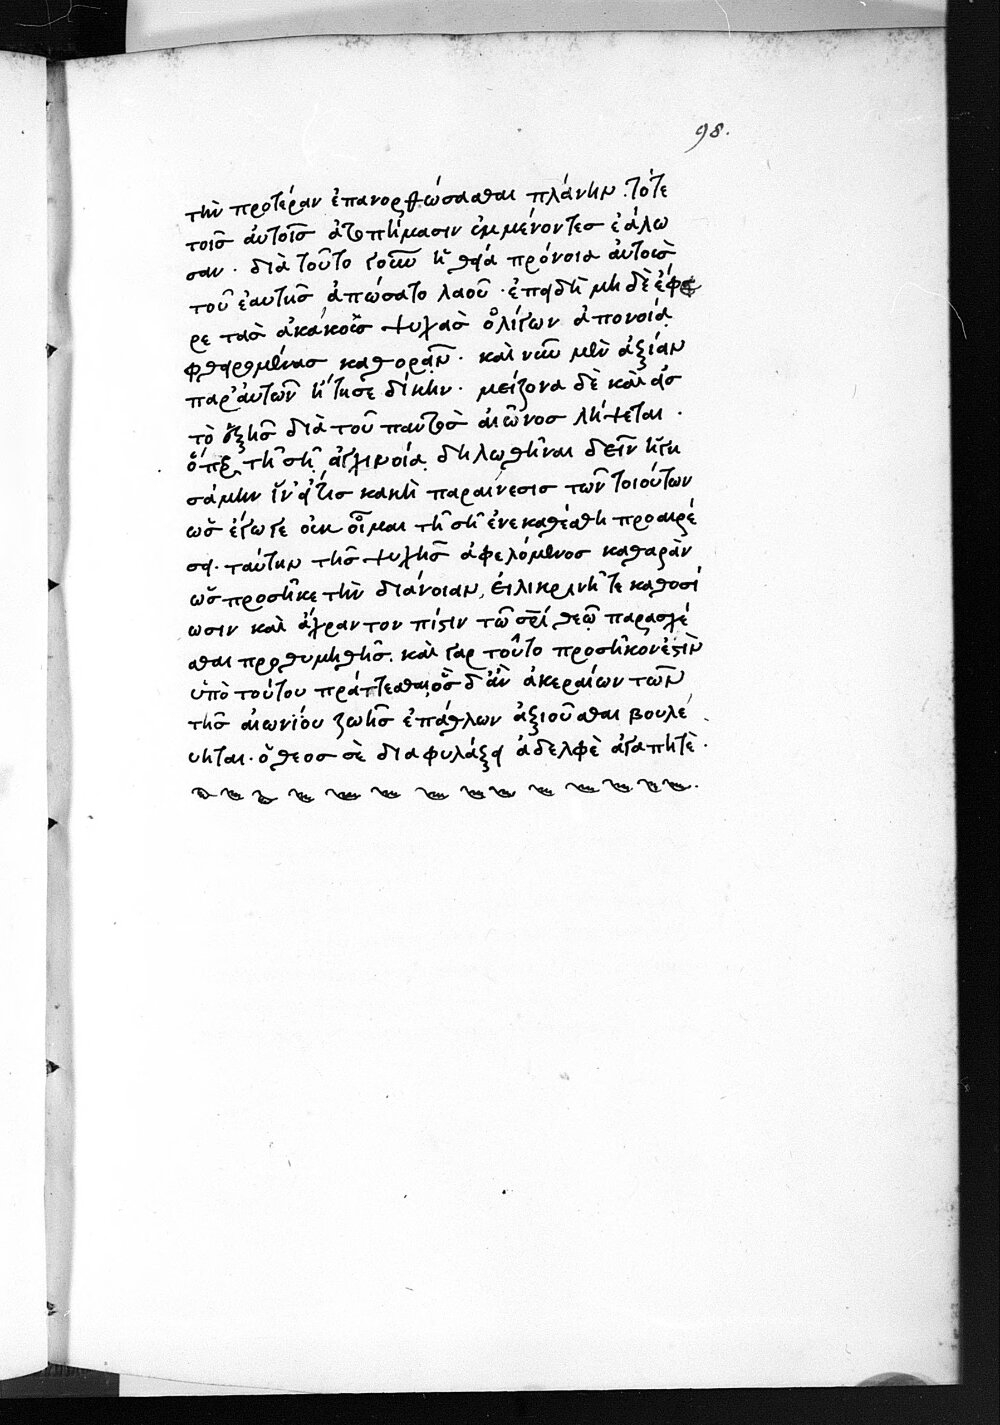 98.
τὴν προτέραν ἐπανορθώσασθαι πλάνην. τότε
τοῖς αὐτοῖς ἀτοπήμασιν ἐμμένοντες ἑάλω
σαν. διὰ τοῦτο γοῦν ἡ θεία πρόνοια αὐτοὺς
τοῦ ἑαυτῆς ἀπώσατο λαοῦ. ἐπειδὴ μὴ δὲ ἔφε
ρε τὰς ἀκάκοις ψυχὰς ὀλίγων ἀπονοίᾳ
φθειρομένας καθορᾶν. καὶ νῦν μὲν ἀξίαν
παρ' αὐτῶν ᾔτησε δίκην. μείζονα δὲ καὶ εἰς
τὸ ἑξῆς διὰ τοῦ παντὸς αἰῶνος λήψεται.
ὅπερ τῇ σῇ ἀγχινοίᾳ δηλωθῆναι δεῖν ἡγη
σάμην ἵν' εἴ τις κακὴ παραίνεσις τῶν τοιούτων
ὡς ἔγωγε οὐκ οἶμαι τῇ σῇ ἐνεκαθέσθη προαιρέ
σει. ταύτην τῆς ψυχῆς ἀφελόμενος καθαρὰν
ὡς προσῆκε τὴν διάνοιαν, εἰλικρινῆ τε καθοσί
ωσιν καὶ ἄχραντον πίστιν τῷ σρί θεῷ παρασχέ
σθαι προθυμηθῇς. καὶ γὰρ τοῦτο προσῆκον ἐστὶν
ὑπὸ τούτου πράττεσθαι, ὃς δ' ἂν ἀκεραίων τῶν
τῆς αἰωνίου ζωῆς ἐπάθλων ἀξιοῦσθαι βουλε
ύηται. ὁ θεος σὲ διαφυλάξει ἀδελφὲ ἀγαπητὲ.